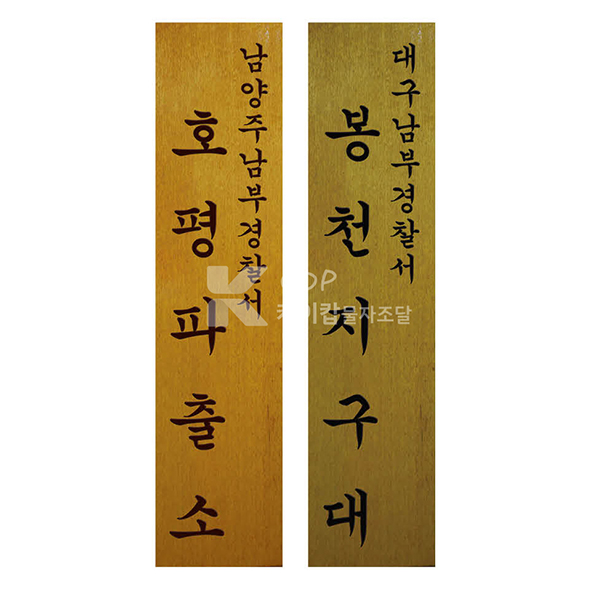 남양주남부경찰서
호평파출소
대구남부경찰서
봉천지구대
K COP
케이캅물자조달